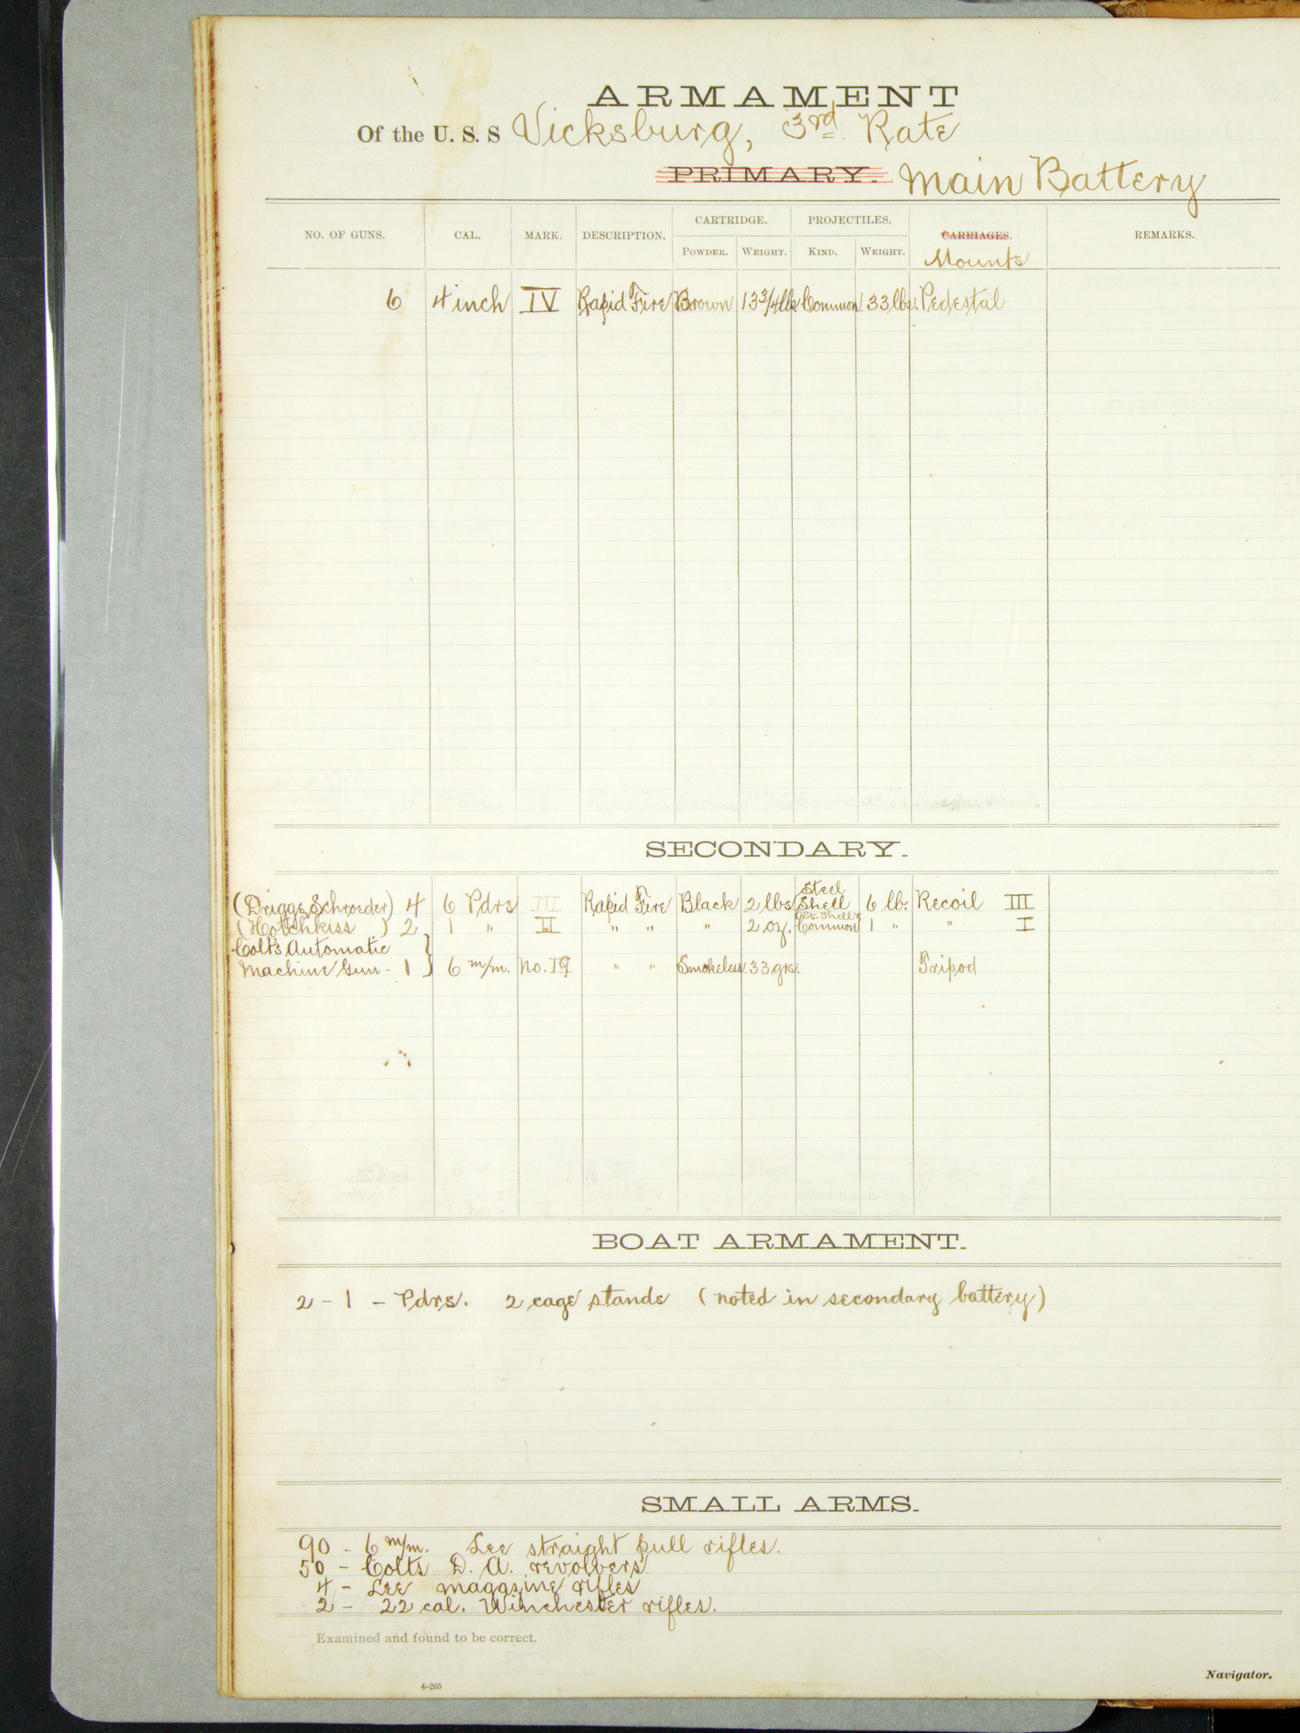 ARMAMENT
Of the U. S. S Vicksburg, 3rd Rate
PRIMARY. Main Battery
NO. OF GUNS. CAL. MARK. DESCRIPTION. CARTRIDGE. PROJECTILES. CARRIAGES. REMARKS.
POWDER. WEIGHT. KIND. WEIGHT. Mounts
6 4 inch IV Rapid Fire Brown 13 3/4 lbs. Common 33 lbs. Pedestal
SECONDARY.
(Driggs Schroeder) 4 6 Pdrs III Rapid Fire Black 2 lbs Steel Shell 6 lb. Recoil III
(Hotchkiss ) 2 1 " II " " " 2 oz. Common 1 " " I
Colt's Automatic
Machine Gun - 1 } 6 m/m. No. 19 " " Smokeless 33 grs. Tripod
BOAT ARMAMENT.
2 - 1 - Pdrs. 2 cage stands (noted in secondary battery)
SMALL ARMS.
90 - 6 m/m. Lee straight pull rifles.
50 - Colts D. A. revolvers
4 - Lee magazine rifles
2 - 22 cal. Winchester rifles.
Examined and found to be correct.
Navigator.
4-265